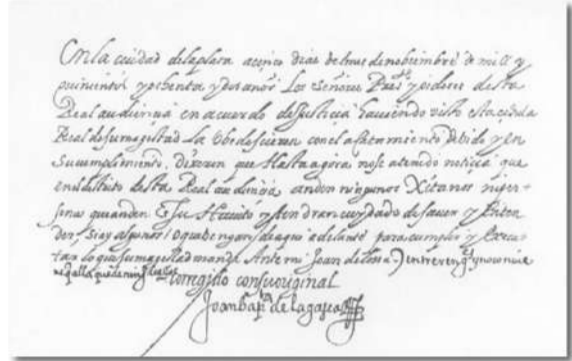 En la ciudad de la plata a cinco dias del mes de nobiembre de mill y
quinientos y ochenta y dos años Los señores Press.te y oidores desta
Real audiencia en acuerdo de justicia haviendo visto esta cedula
Real de su magestad La obedescieron con el acatamiento devido y en
su cumplimiento, dixeron que Hasta agora no se a tenido noticia que
en el distrito desta Real audiencia anden ningunos Xitanos ni per-
sonas que anden en su Havito y tendran cuydado de saver y Enten
der, si ay algunos o que vengan de aqui adelante para cumplir y Execu
tar lo que su magestad manda Ante mi Juan de Losa entre reng.s y noconvie
ni qalla que de ningu corregido con su original
Joan bap.ta de la gasca